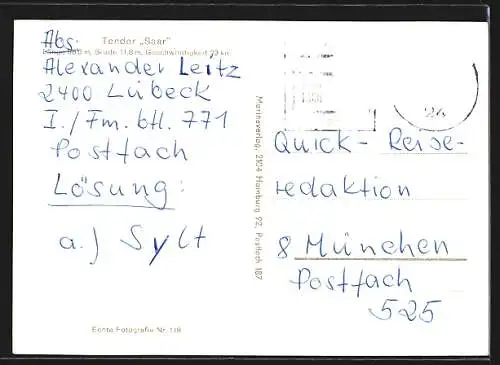 Tender „Saar"
Breite 11,8 m, Geschwindigkeit
Abs.
Alexander Leitz
2400 Lübeck
I./Fm. btl. 771
Postfach
Lösung:
a.) Sylt
Echte Fotografie Nr.
Marineverlag, 2104 Hamburg 92, Postfach 187
Quick- Reise-
redaktion
8 München
Postfach
525